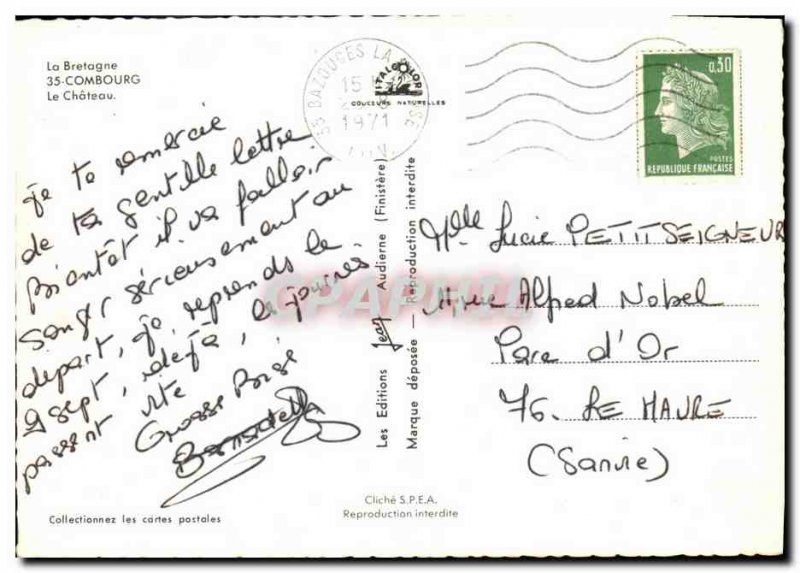 La Bretagne
35-COMBOURG
Le Château.
je te remercie
de ta gentille lettre
Bientôt il va falloir
songer sérieusement au
depart, je reprends le
9 sept, déjà, les journées
passent vite
Grosse Bise
Bernadette
Collectionnez les cartes postales
35 BAZOUGES LA
15 H
1971
ITALCOLOR
COULEURS NATURELLES
Les Editions Jean Audierne (Finistère)
Marque déposée — Reproduction interdite
Cliché S.P.E.A.
Reproduction interdite
0,30
POSTES
REPUBLIQUE FRANÇAISE
Mlle Lucie PETITSEIGNEUR
rue Alfred Nobel
Parc d'Or
76. LE HAVRE
(Sanvic)
CPAPHIL